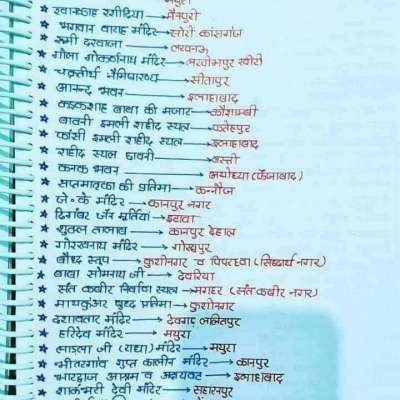 मथुरा
★ ख्वानकाह रशीदिया → मैनपुरी
★ भगवान वाराह मंदिर → सोरों कासगंज
★ रूमी दरवाजा → लखनऊ
★ गोला गोकर्णनाथ मंदिर → लखीमपुर खीरी
★ चक्रतीर्थ नैमिषारण्य → सीतापुर
★ आनन्द भवन → इलाहाबाद
★ कड़कशाह बाबा की मजार → कौशाम्बी
★ बावनी इमली शहीद स्थल → फतेहपुर
★ फांसी इमली शहीद स्थल → इलाहाबाद
★ शहीद स्थल छावनी → बस्ती
★ कनक भवन → अयोध्या (फैजाबाद)
★ सप्तमातृका की प्रतिमा → कन्नौज
★ जे० के मंदिर → कानपुर नगर
★ दिगंबर जैन मूर्तियां → इटावा
★ शुक्ल तालाब → कानपुर देहात
★ गोरखनाथ मंदिर → गोरखपुर
★ बौध्द स्तूप → कुशीनगर व पिपरहवा (सिद्धार्थ नगर)
★ बाबा सोमनाथ जी → देवरिया
★ संत कबीर निर्वाण स्थल → मगहर (संत कबीर नगर)
★ माथकुंअर बुध्द प्रतिमा → कुशीनगर
★ दशावतार मंदिर → देवगढ़ ललितपुर
★ हरिदेव मंदिर → मथुरा
★ लाडला जी (राधा) मंदिर → मथुरा
★ भीतरगांव गुप्त कालीन मंदिर → कानपुर
★ भारद्वाज आश्रम व अक्षयवट → इलाहाबाद
★ शाकंभरी देवी मंदिर → सहारनपुर